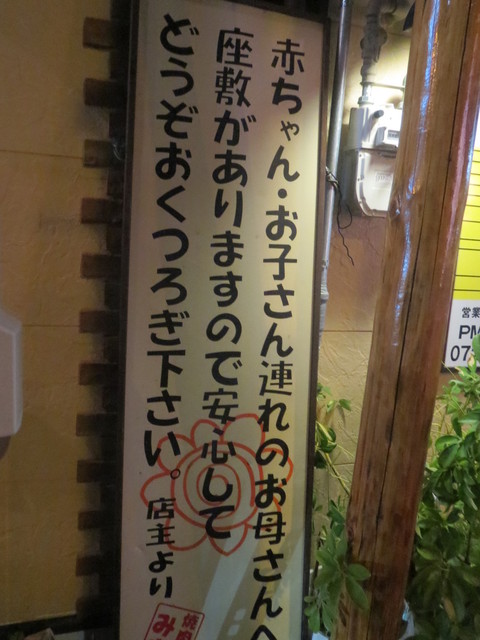 赤ちゃん・お子さん連れのお母さんへ
座敷がありますので安心して
どうぞおくつろぎ下さい。
店主より
み
営業
PM
07